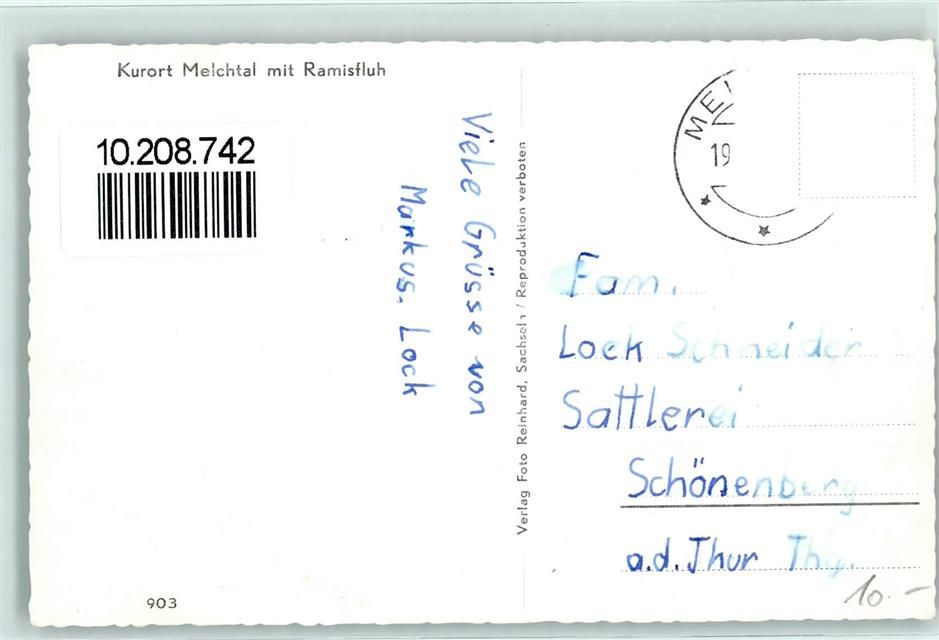 Kurort Melchtal mit Ramisfluh
10.208.742
Viele Grüsse von
Markus. Lock
Verlag Foto Reinhard, Sachseln / Reproduktion verboten
19
Fam.
Lock Schneider
Sattlerei
Schönenberg
a.d. Thur Thg.
10.-
903